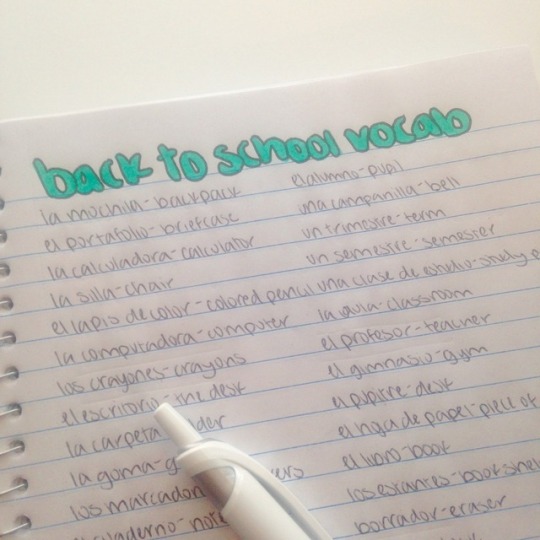 back to school vocab
la mochila-backpack
el portafolio-briefcase
la calculadora-calculator
la silla-chair
el lapis de color-colored pencil
la computadora-computer
los crayones-crayons
el escritorio-the desk
la carpeta der
la goma-g
los marcador
cuaderno-note
el alumno-pupil
una campanilla-bell
un trimestre-term
un semestre-semester
una clase de estudio-study
la aula-classroom
el profesor-teacher
el gimnasio-gym
el pupitre-desk
el hoja de papel-piece of
el libro-book
los estantes-bookshel
borrador-eraser